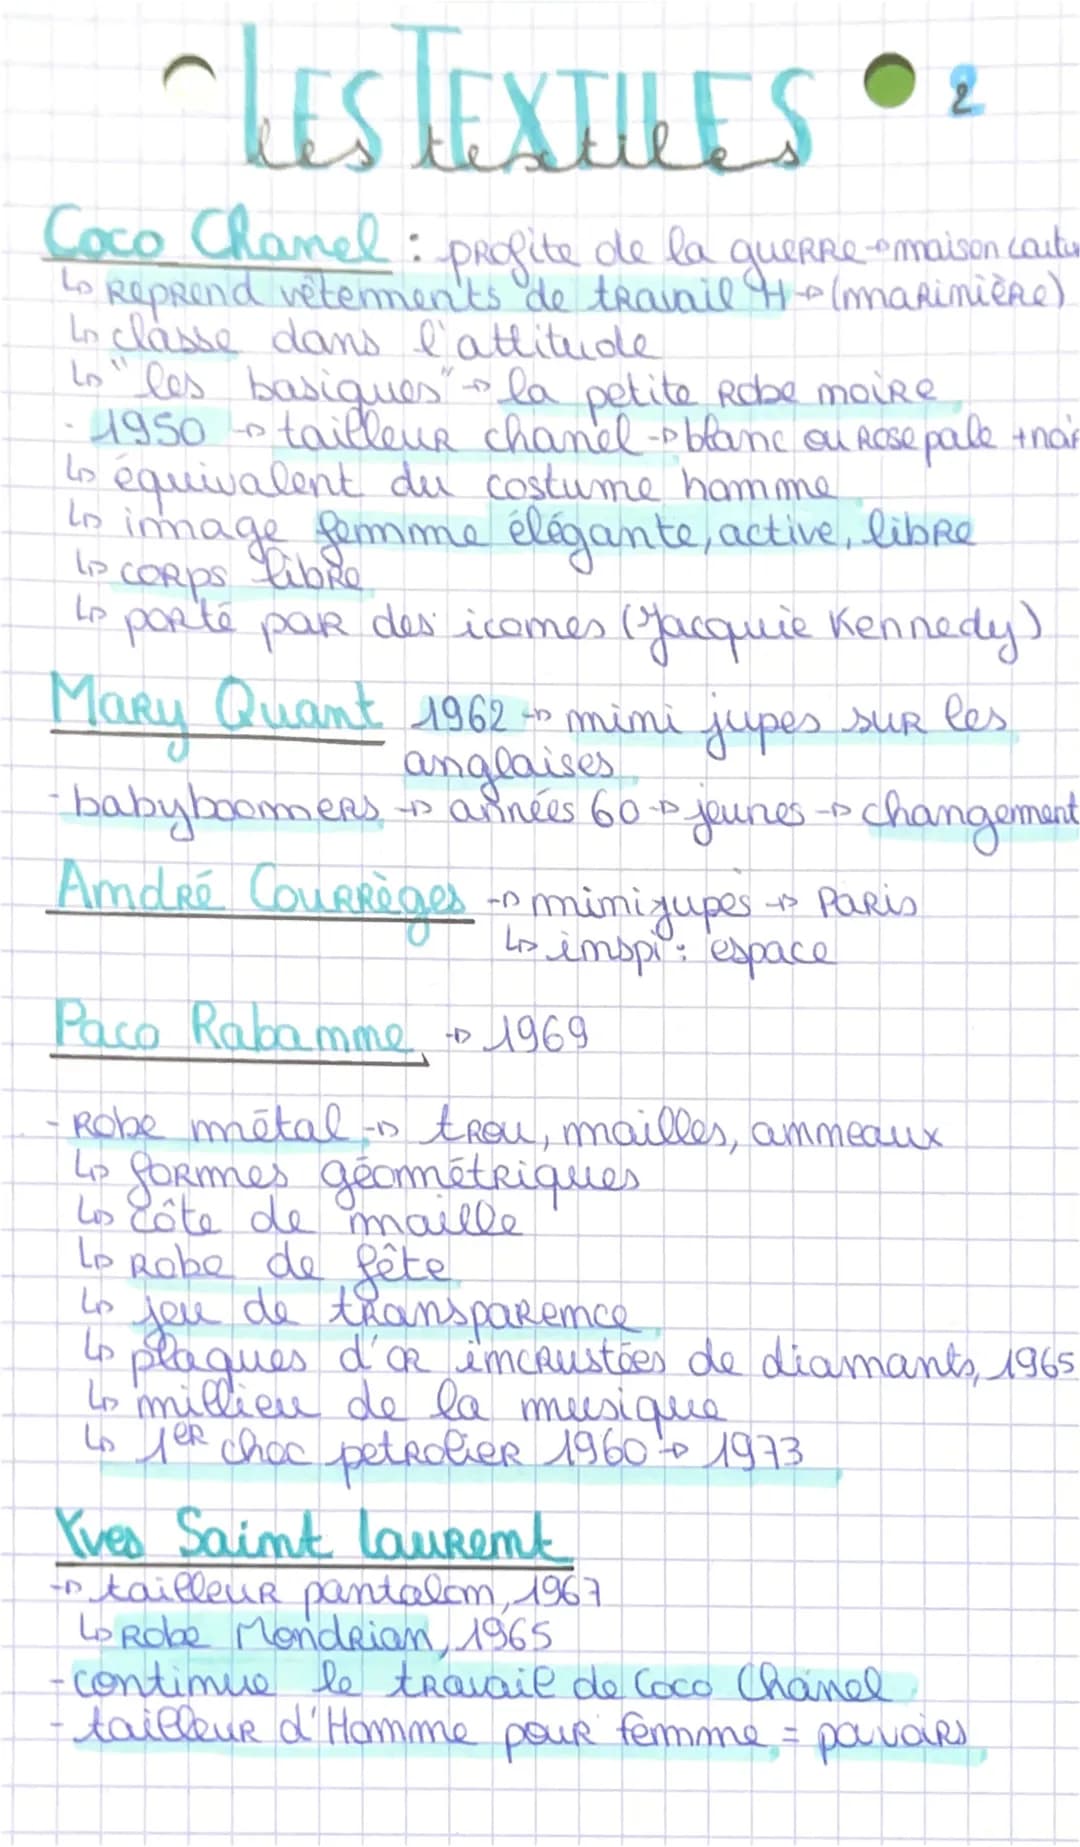 LES TEXTILES 2
les textiles
Coco Chanel : profite de la guerre → maison coutu
↳ reprend vêtements de travail H → (marinière)
↳ classe dans l'attitude
↳ "les basiques" → la petite robe noire
- 1950 → tailleur chanel → blanc ou rose pale + noir
↳ équivalent du costume homme
↳ image femme élégante, active, libre
↳ corps libre
↳ porté par des icones (Jacquie Kennedy)
Mary Quant 1962 → mini jupes sur les
anglaises
- babyboomers → années 60 → jeunes → changement
André Courrèges → minijupes → Paris
↳ inspi : espace
Paco Rabanne → 1969
- Robe métal → trou, mailles, anneaux
↳ formes géométriques
↳ côte de maille
↳ Robe de fête
↳ jeu de transparence
↳ plaques d'or incrustées de diamants, 1965
↳ millieu de la musique
↳ 1er choc petrolier 1960 → 1973
Yves Saint Laurent
→ tailleur pantalon, 1967
↳ Robe Mondrian, 1965
- continue le travail de Coco Chanel
- tailleur d'Homme pour femme = pouvoirs